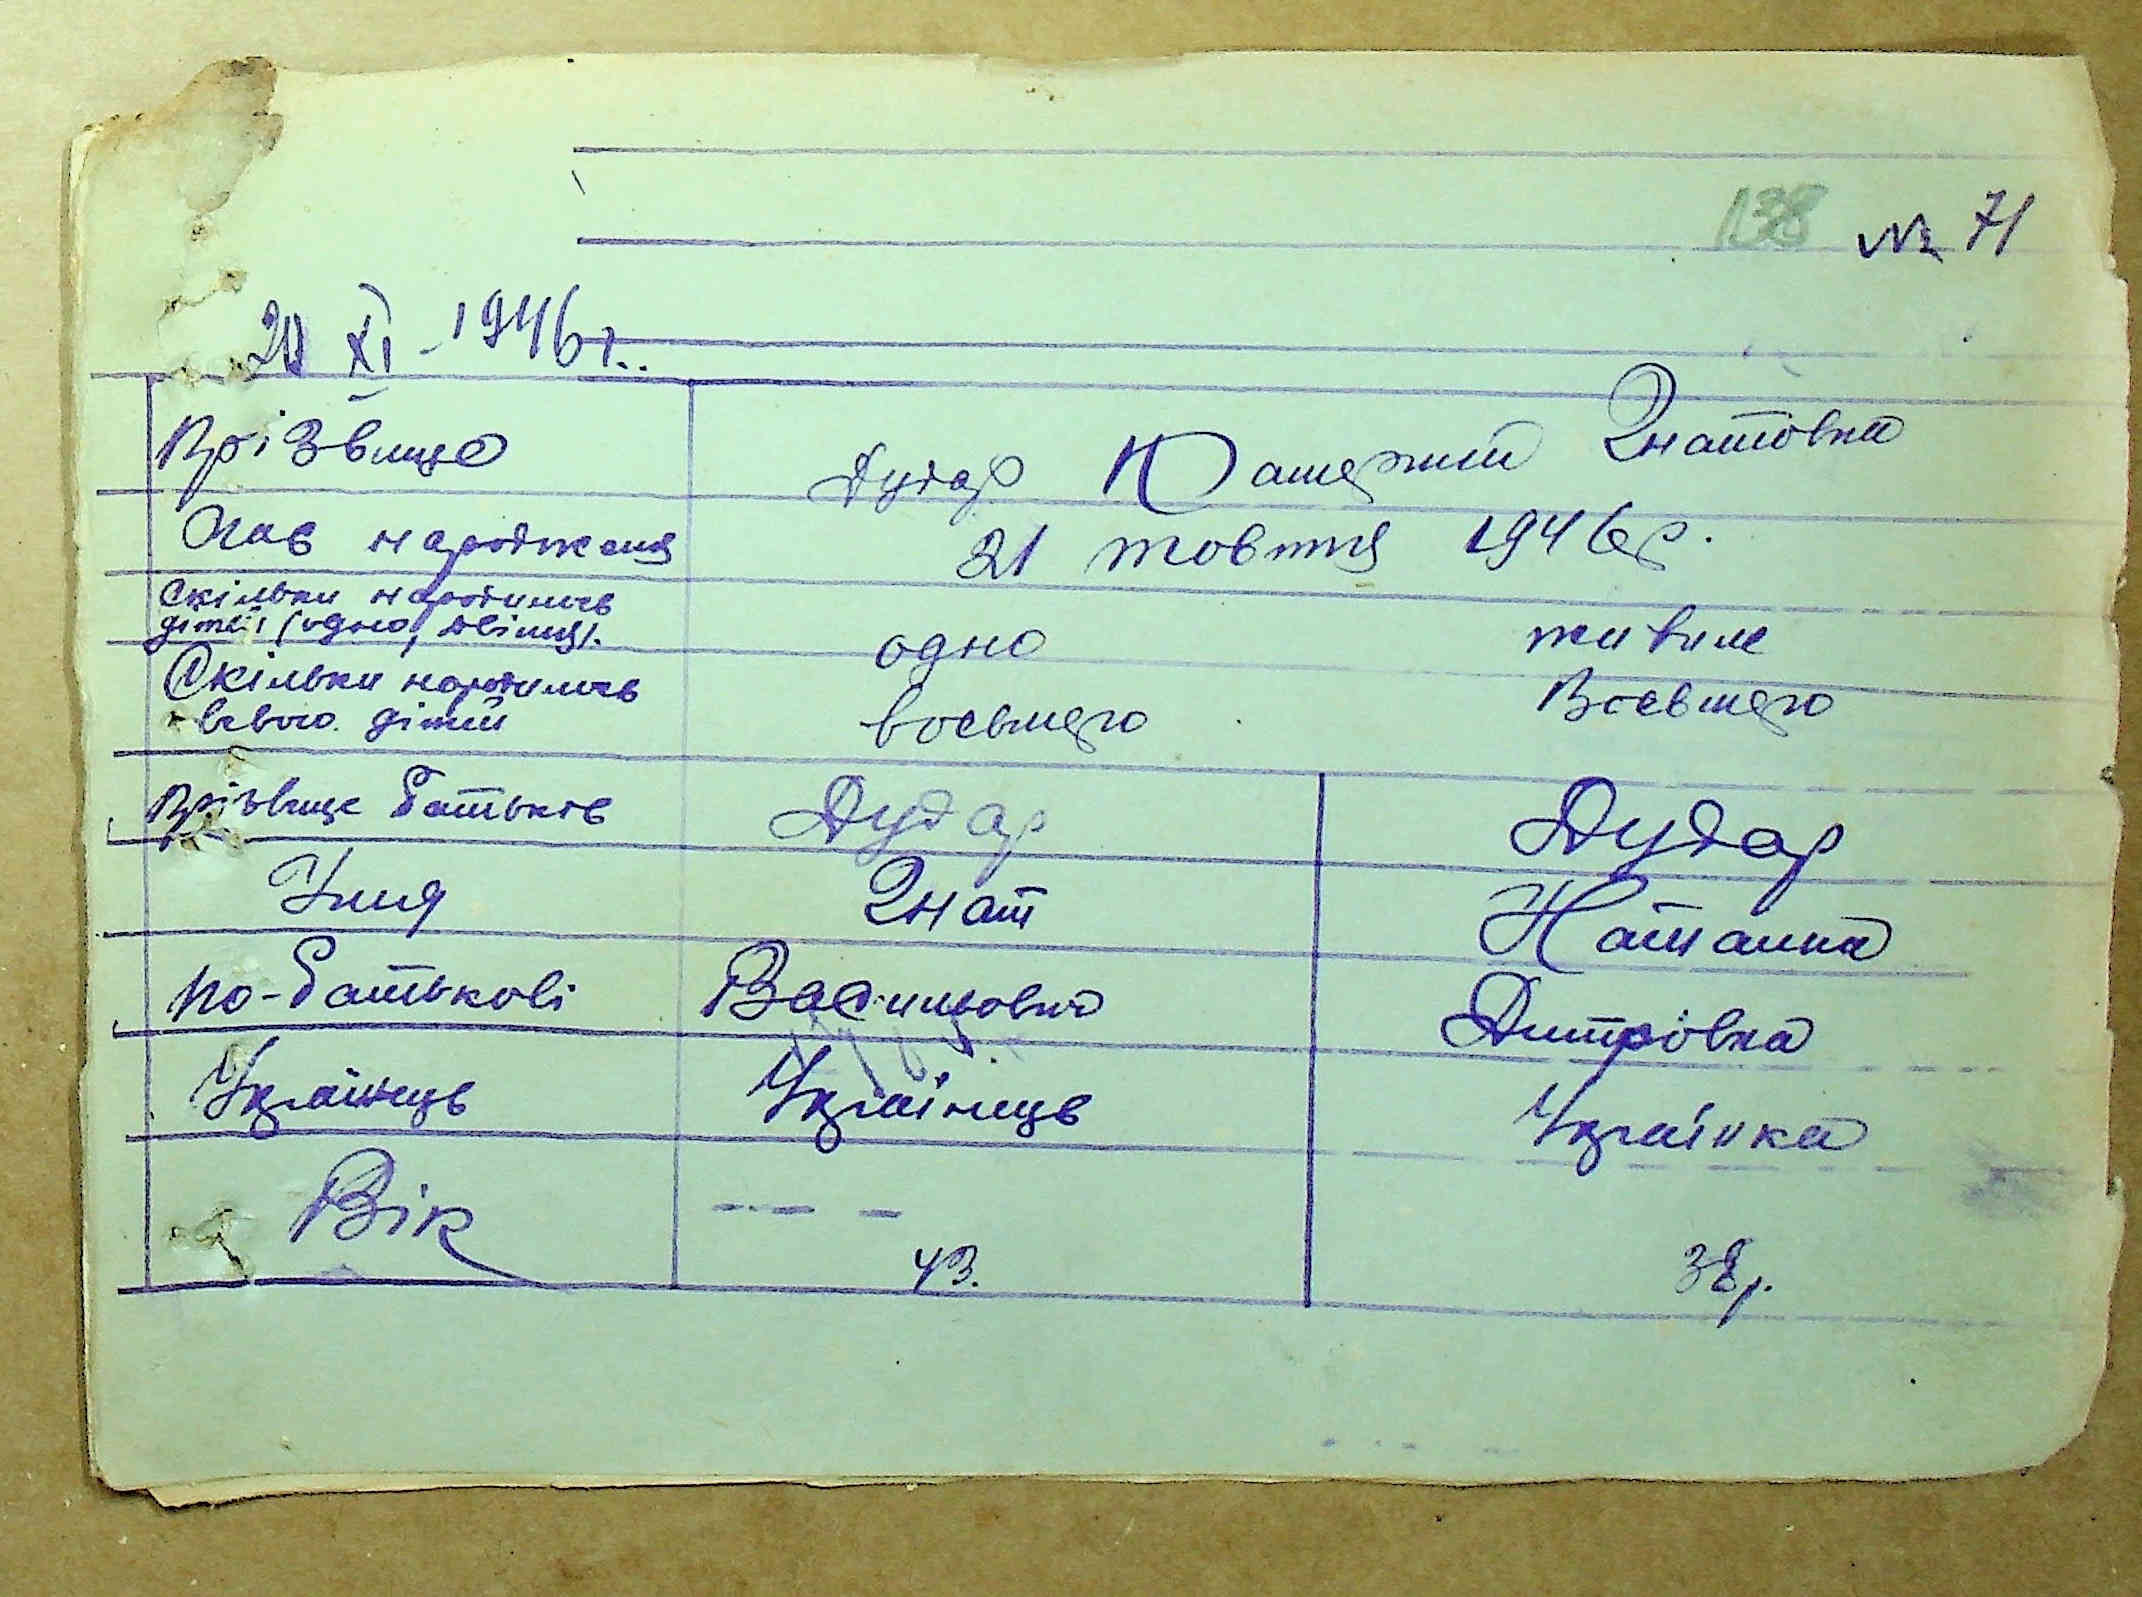 138 № 71
XI - 1946 г.
Прізвище Дудар Катерина Гнатовна
Час народженя 21 жовтня 1946 р.
Скільки народилось
дітей (одно, двійця). одно живиме
Скільки народилось
всього дітей восьмего Восьмего
Прізвище батьків Дудар Дудар
Імя Гнат Наталка
по-батькові Васильович Дмитрівна
Українець Українець Українка
Вік 43. 38 р.